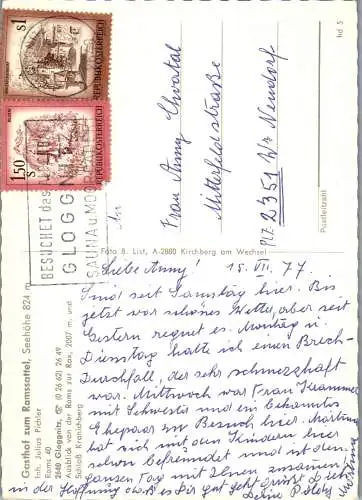 S1
REPUBLIK ÖSTERREICH
1.50 S
REPUBLIK ÖSTERREICH
BESUCHET das
GLOGGN
SAUNA u. MOOR
An
Frau Anny Chvatal
Mitterfeldstraße
PLZ 2351 Wr. Neudorf
Postleitzahl
hd 5
Foto B. List, A-2880 Kirchberg am Wechsel
Gasthof zum Ramssattel, Seehöhe 824 m
Inh. Julius Pichler
Rams 40
2640 Gloggnitz, ☎ (0 26 62) 26 49
mit Ausblick von der Rams zur Rax, 2007 m, und
Schloß Kranichberg
Liebe Anny! 15. VII. 77
Sind seit Samstag hier. Bis
jetzt war schönes Wetter, aber seit
Gestern regnet es. Montag u.
Dienstag hatte ich einen Brech-
Durchfall, der sehr schmerzhaft
war. Mittwoch war Frau Krammer
mit Schwester und ein bekanntes
Ehepaar zu Besuch hier. Martina
hat sich mit den Kindern hier
schon befreundet und ist den
ganzen Tag mit Ihnen zusammen
in der Hoffnung das es Dir gut geht grüßt Dich
Deine Poldy Martina